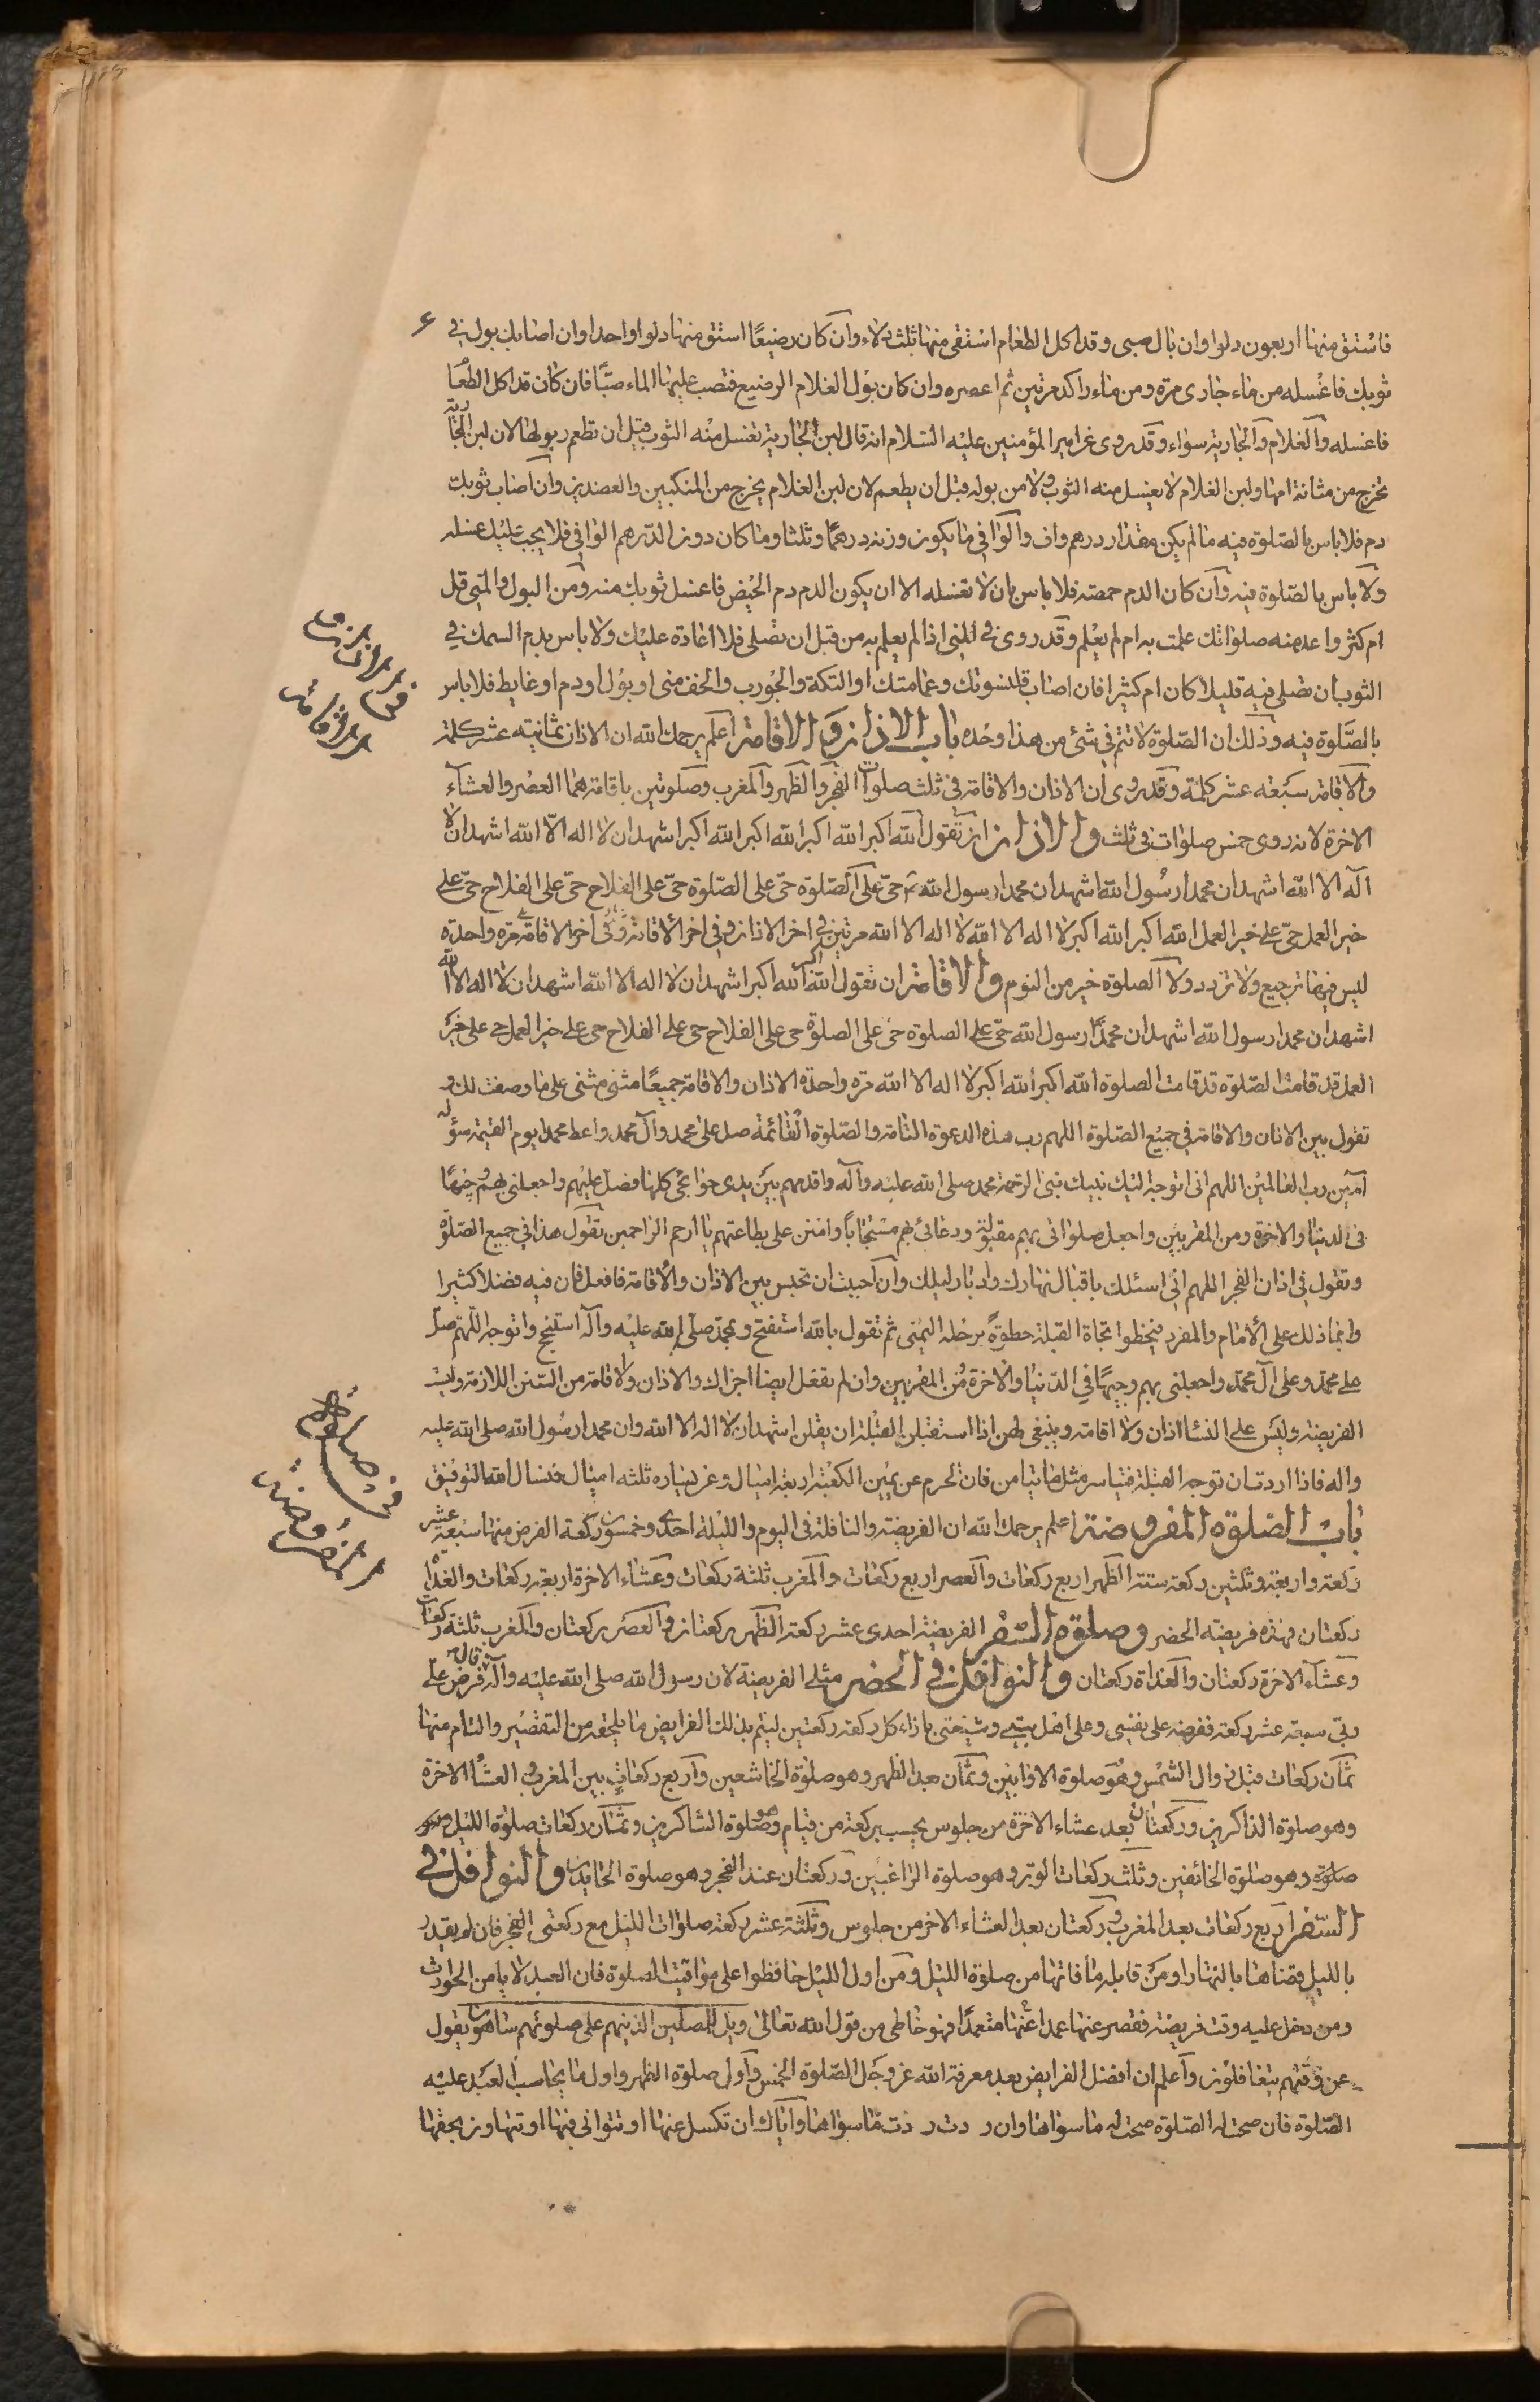 فاستق منها اربعون دلوا وان بال صبى وقد اكل الطعام استقى منها ثلث دلاء وان كان رضيعًا استق منها دلوا واحدا وان اصابك بول فى
ثوبك فاغسله من ماء جارى مرة ومن ماء راكد مرتين ثم اعصره وان كان بول الغلام الرضيع فتصب عليها الماء صبًّا فان كان قد اكل الطعا
فاغسله والغلام والجارية سواء وقد روى عن امير المؤمنين عليه السلام انه قال لبن الجارية تغسل منه الثوب قبل ان تطعم وبولها لان لبن الجارية
تخرج من مثانة امها ولبن الغلام لا يغسل منه الثوب ولا من بوله قبل ان يطعم لان لبن الغلام يخرج من المنكبين والعضدين وان اصاب ثوبك
دم فلا باس بالصلوة فيه ما لم يكن مقدار درهم واف والوافى ما يكون وزنه درهمًا وثلثا وما كان دون الدرهم الوافى فلا يجب عليك غسله
ولا باس بالصلوة فيه وان كان الدم حمصة فلا باس بان لا تغسله الا ان يكون الدم دم الحيض فاغسل ثوبك منه ومن البول والمنى قل
ام كثر واعد منه صلوتك علمت به ام لم يعلم وقد روى فى المنى اذا لم يعلم به من قبل ان تصلى فلا اعادة عليك ولا باس بدم السمك فى
الثوب ان تصلى فيه قليلا كان ام كثيرا فان اصاب قلنسوتك وعمامتك او التكة والجورب والخف منى او بول او دم او غايط فلا باس
بالصلوة فيه وذلك ان الصلوة لا تتم فى شئ من هذا وحده باب الاذان والاقامة اعلم يرحمك الله ان الاذان ثمانية عشر كلمة
والاقامة سبعة عشر كلمة وقد روى ان الاذان والاقامة فى ثلث صلوات الفجر والظهر والمغرب وصلوتين باقامة هما العصر والعشاء
الاخرة لانه روى خمس صلوات فى ثلث والاذان ان تقول الله اكبر الله اكبر الله اكبر الله اكبر اشهد ان لا اله الا الله اشهد ان لا
اله الا الله اشهد ان محمدا رسول الله اشهد ان محمدا رسول الله حى على الصلوة حى على الصلوة حى على الفلاح حى على الفلاح حى على
خير العمل حى على خير العمل الله اكبر الله اكبر لا اله الا الله لا اله الا الله مرتين فى اخر الاذان وفى اخر الاقامة مرة واحدة
ليس فيها ترجيع ولا تردد ولا الصلوة خير من النوم والاقامة ان تقول الله اكبر الله اكبر اشهد ان لا اله الا الله اشهد ان لا اله الا الله
اشهد ان محمدا رسول الله اشهد ان محمدًا رسول الله حى على الصلوة حى على الصلوة حى على الفلاح حى على الفلاح حى على خير العمل حى على خير
العمل قد قامت الصلوة قد قامت الصلوة الله اكبر الله اكبر لا اله الا الله مرة واحدة الاذان والاقامة جميعًا مثنى مثنى على ما وصفت لك و
تقول بين الاذان والاقامة فى جميع الصلوة اللهم رب هذه الدعوة التامة والصلوة القائمة صل على محمد وآل محمد واعط محمدا يوم القيمة سؤله
آمين رب العالمين اللهم انى اتوجه اليك نبيك نبى الرحمة محمد صلى الله عليه وآله واقدمهم بين يدى حوائجى كلها فصل عليهم واجعلنى بهم وجيهًا
فى الدنيا والاخرة ومن المقربين واجعل صلواتى بهم مقبولة ودعائى بهم مستجابًا وامنن على بطاعتهم يا ارحم الراحمين تقول هذا فى جميع الصلوة
وتقول فى اذان الفجر اللهم انى اسئلك باقبال نهارك وادبار ليلك وان احببت ان تجلس بين الاذان والاقامة فافعل فان فيه فضلا كثيرا
وانما ذلك على الامام والمفرد فيخطوا تجاه القبلة خطوةً برجله اليمنى ثم تقول بالله استفتح وبمحمد صلى الله عليه وآله استنجح واتوجه اللهم صل
على محمد وعلى آل محمد واجعلنى بهم وجيهًا فى الدنيا والاخرة من المقربين وان لم تفعل ايضا اجزاك والاذان والاقامة من السنن اللازمة وليست
الفريضة وليس على النساء اذان ولا اقامة وينبغى لهن اذا استقبلن القبلة ان يقلن اشهد ان لا اله الا الله وان محمدا رسول الله صلى الله عليه
واله فاذا اردت ان توجه القبلة فتياسر مثل ما تيامن فان الحرم عن يمين الكعبة اربعة اميال وعن يساره ثلثه اميال فنسال الله التوفيق
باب الصلوة المفروضة اعلم يرحمك الله ان الفريضة والنافلة فى اليوم والليلة احدى وخمسون ركعة الفرض منها سبعة عشر
ركعة واربعة وثلثين ركعة سنة الظهر اربع ركعات والعصر اربع ركعات والمغرب ثلثة ركعات وعشاء الاخرة اربعة ركعات والغداة
ركعتان فهذه فريضة الحضر وصلوة السفر الفريضة احدى عشر ركعة الظهر ركعتان والعصر ركعتان والمغرب ثلثة ركعات
وعشاء الاخرة ركعتان والغداة ركعتان والنوافل فى الحضر مثلى الفريضة لان رسول الله صلى الله عليه وآله قال فرض على
ربى سبعة عشر ركعة ففرضه على نفسى وعلى اهل بيتى وشيعتى بازاء كل ركعة ركعتين ليتم بذلك الفرايض ما يلحقه من التقصير والثلم منها
ثمان ركعات قبل زوال الشمس وهو صلوة الاوابين وثمان بعد الظهر وهو صلوة الخاشعين واربع ركعات بين المغرب والعشاء الاخرة
وهو صلوة الذاكرين وركعتان بعد عشاء الاخرة من جلوس يحسب بركعة من قيام وهو صلوة الشاكرين وثمان ركعات صلوة الليل وهو
صلوة وهو صلوة الخائفين وثلث ركعات الوتر وهو صلوة الراغبين وركعتان عند الفجر وهو صلوة الحامدين والنوافل فى
السفر اربع ركعات بعد المغرب وركعتان بعد العشاء الاخر من جلوس وثلثة عشر ركعة صلوات الليل مع ركعتى الفجر فان لم يقدر
بالليل قضاها بالنهار او من قابله ما فاتها من صلوة الليل ومن اول الليل حافظوا على مواقيت الصلوة فان العبد لا يامن الحوادث
ومن دخل عليه وقت فريضة فقصر عنها عمدا متعمدًا فهو خاطى من قول الله تعالى ويل للمصلين الذينهم على صلوتهم ساهون يقول
عن وقتهم يتغافلون واعلم ان افضل الفرايض بعد معرفة الله عز وجل الصلوة الخمس واول صلوة الظهر واول ما يحاسب العبد عليه
الصلوة فان صحت له الصلوة صحت له ما سواها وان ردت ردت ما سواها واياك ان تكسل عنها او تتوانى فيها او تتهاون بحقها
فى الاذان و
الاقامة
فى صلوة
المفروضة